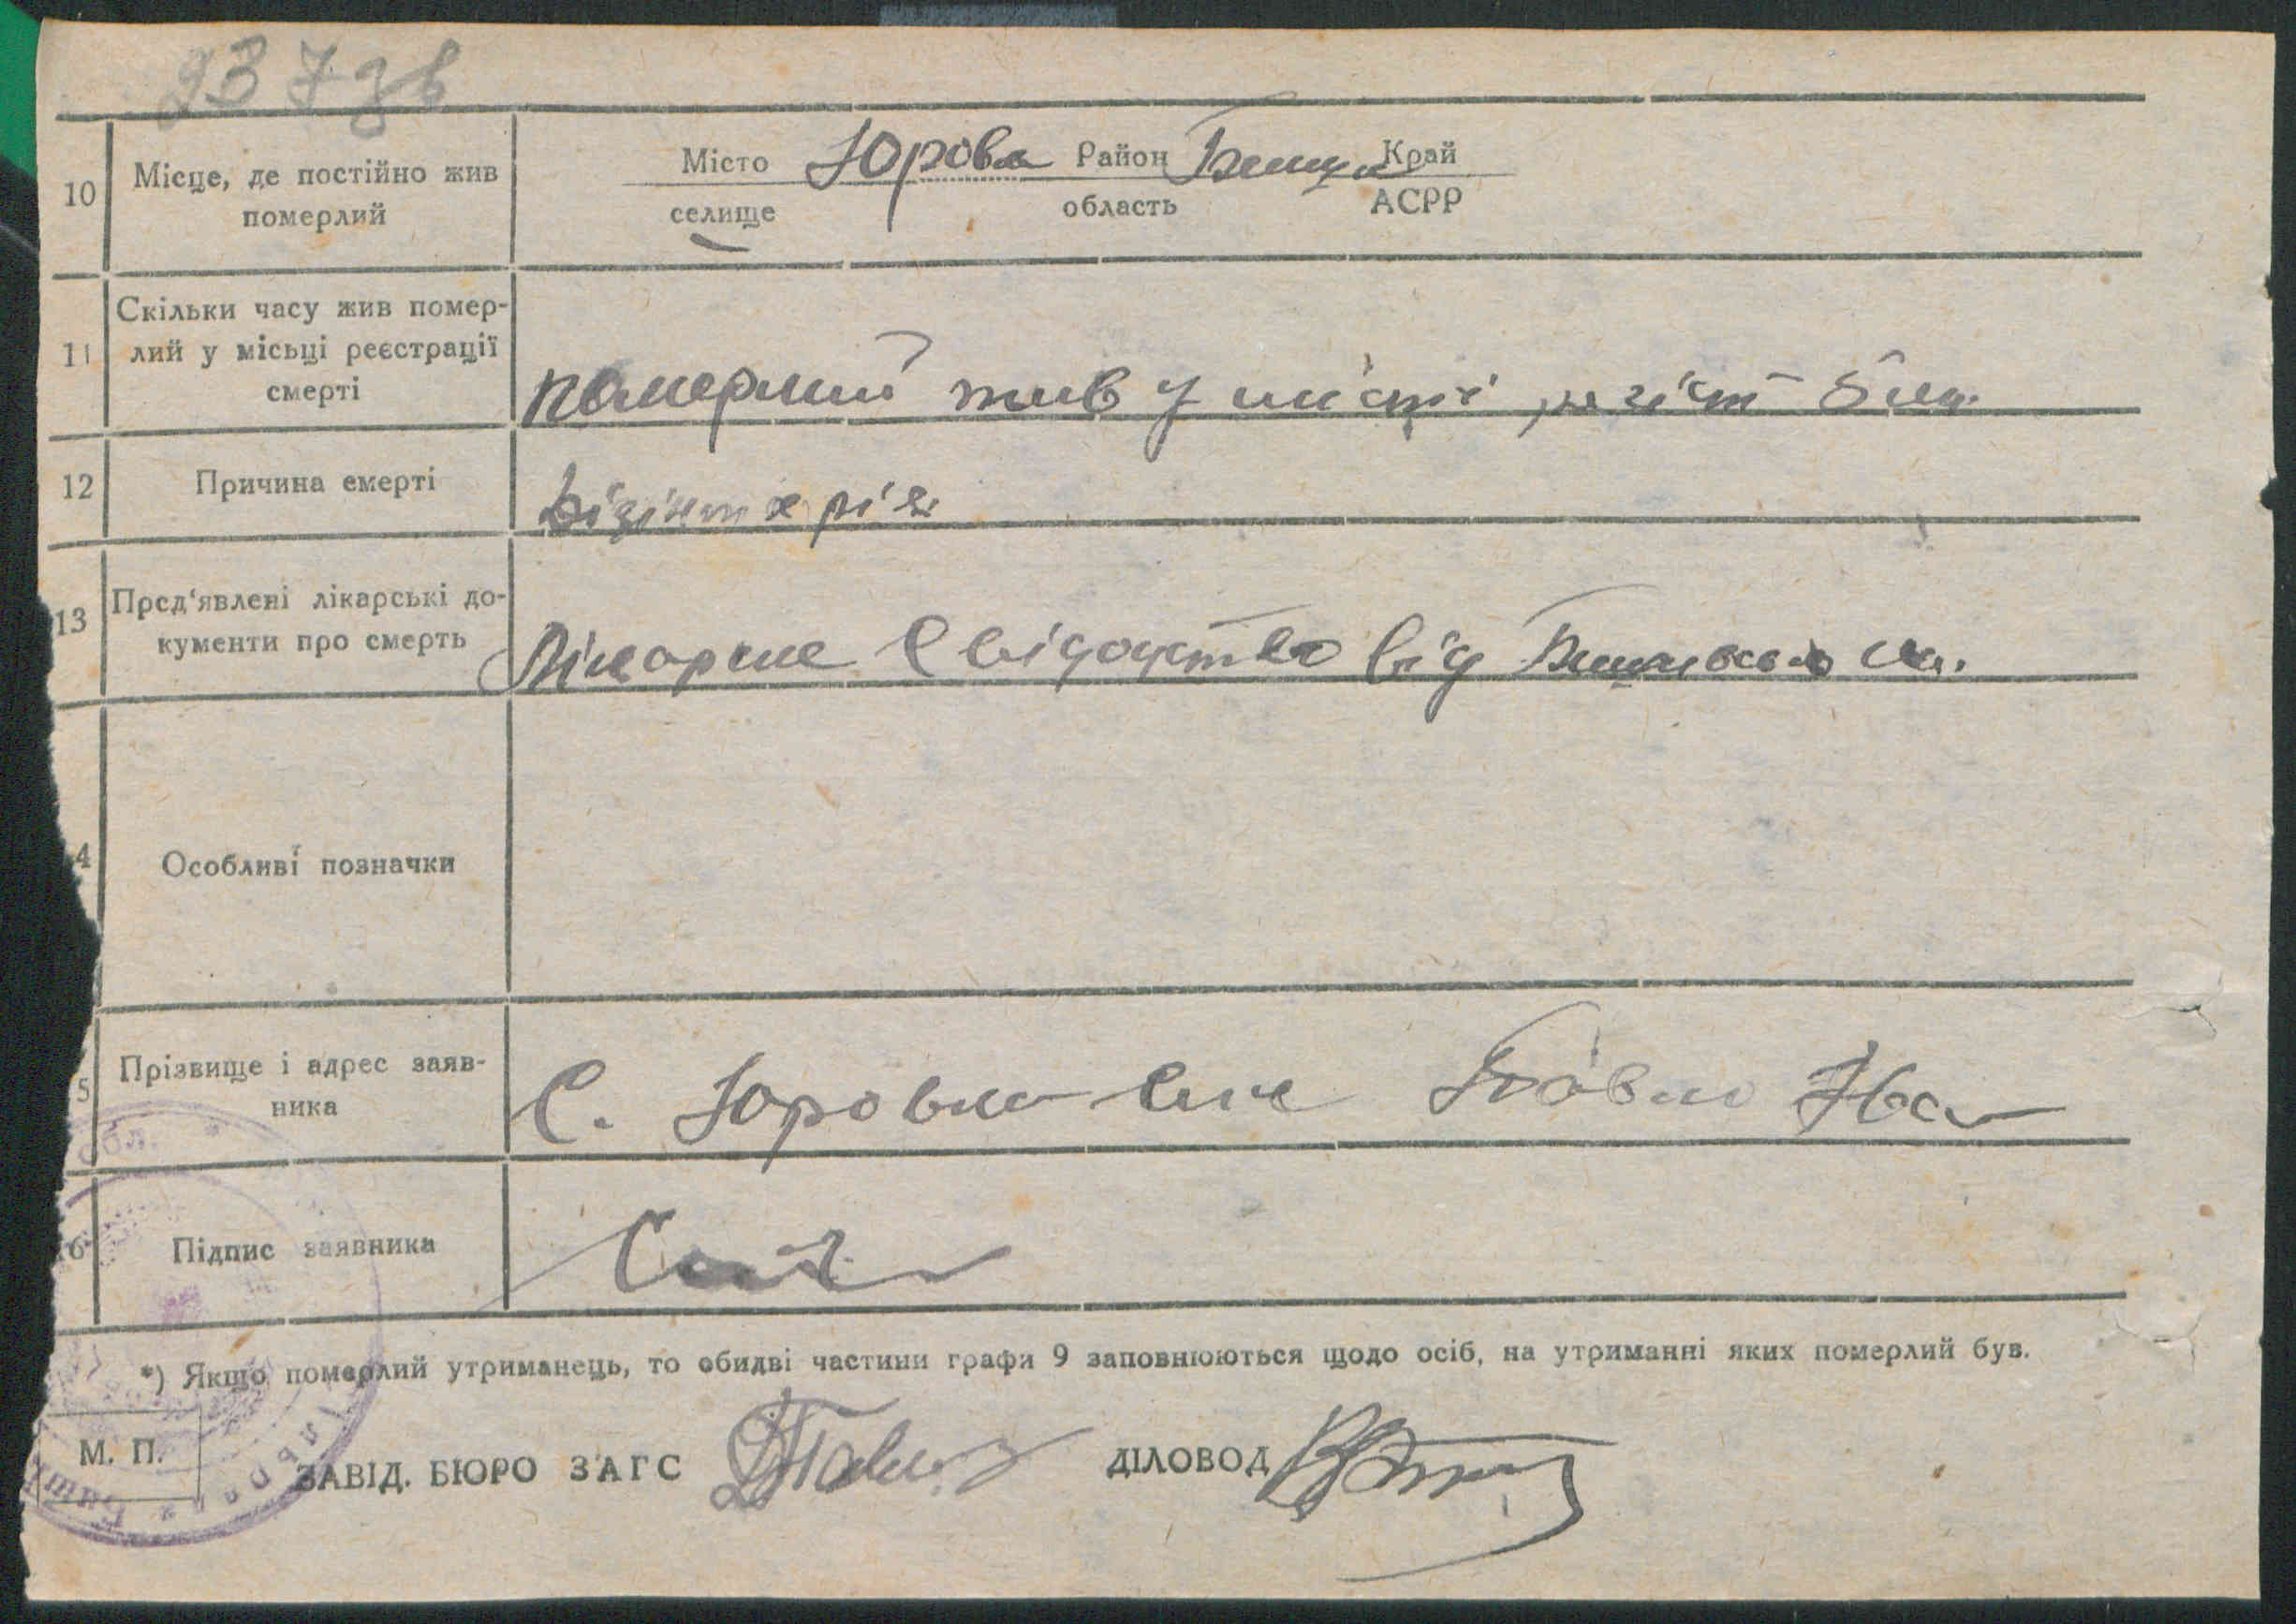 237зв
10 Місце, де постійно жив Місто Юрова Район Край
померлий селище область АСРР
Скільки часу жив помер-
11 лий у місьці реєстрації
смерті
померлий жив у місті
12 Причина смерті Дізінтерія
13 Пред'явлені лікарські до-
кументи про смерть
Лікарске Свідоцтво від
4 Особливі позначки
5 Прізвище і адрес заяв-
ника
С. Юровка Павло Іва
6 Підпис заявника
*) Якщо померлий утриманець, то обидві частини графи 9 заповнюються щодо осіб, на утриманні яких померлий був.
М. П.
ЗАВІД. БЮРО ЗАГС ДІЛОВОД